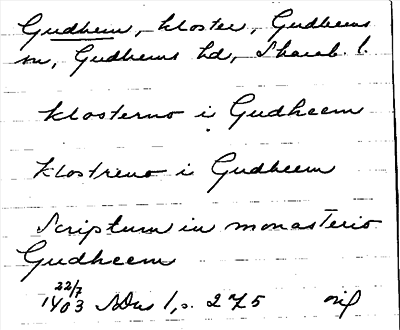 Gudhem, kloster, Gudhems
sn, Gudhems hd, Skarab. l.
klosterno i Gudheem
klostreno i Gudheem
Scriptum in monasterio
Gudheem
22/7 1403 SDns 1, s. 275 orig